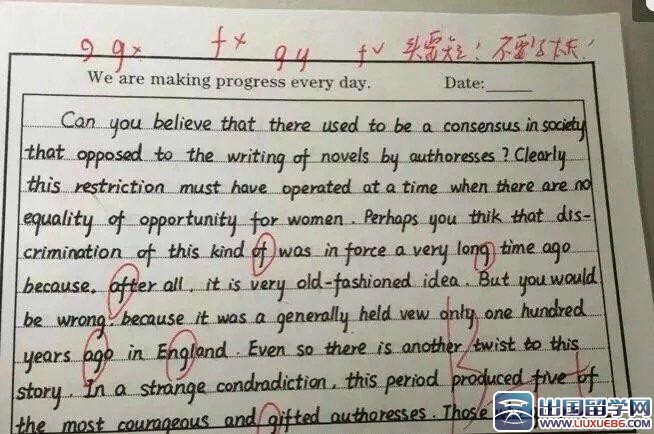 9 g× f× g y f✓ 头需短! 不要写太长!
We are making progress every day. Date:
Can you believe that there used to be a consensus in society
that opposed to the writing of novels by authoresses? Clearly
this restriction must have operated at a time when there are no
equality of opportunity for women. Perhaps you thik that dis-
crimination of this kind of was in force a very long time ago
because, after all, it is very old-fashioned idea. But you would
be wrong, because it was a generally held vew only one hundred
years ago in England. Even so there is another twist to this
story. In a strange condradiction, this period produced five of
the most courageous and gifted authoresses. Those
出国留学网
WWW.LIUXUE86.COM